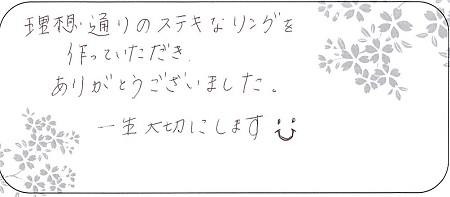 理想通りのステキなリングを
作っていただき、
ありがとうございました。
一生大切にします